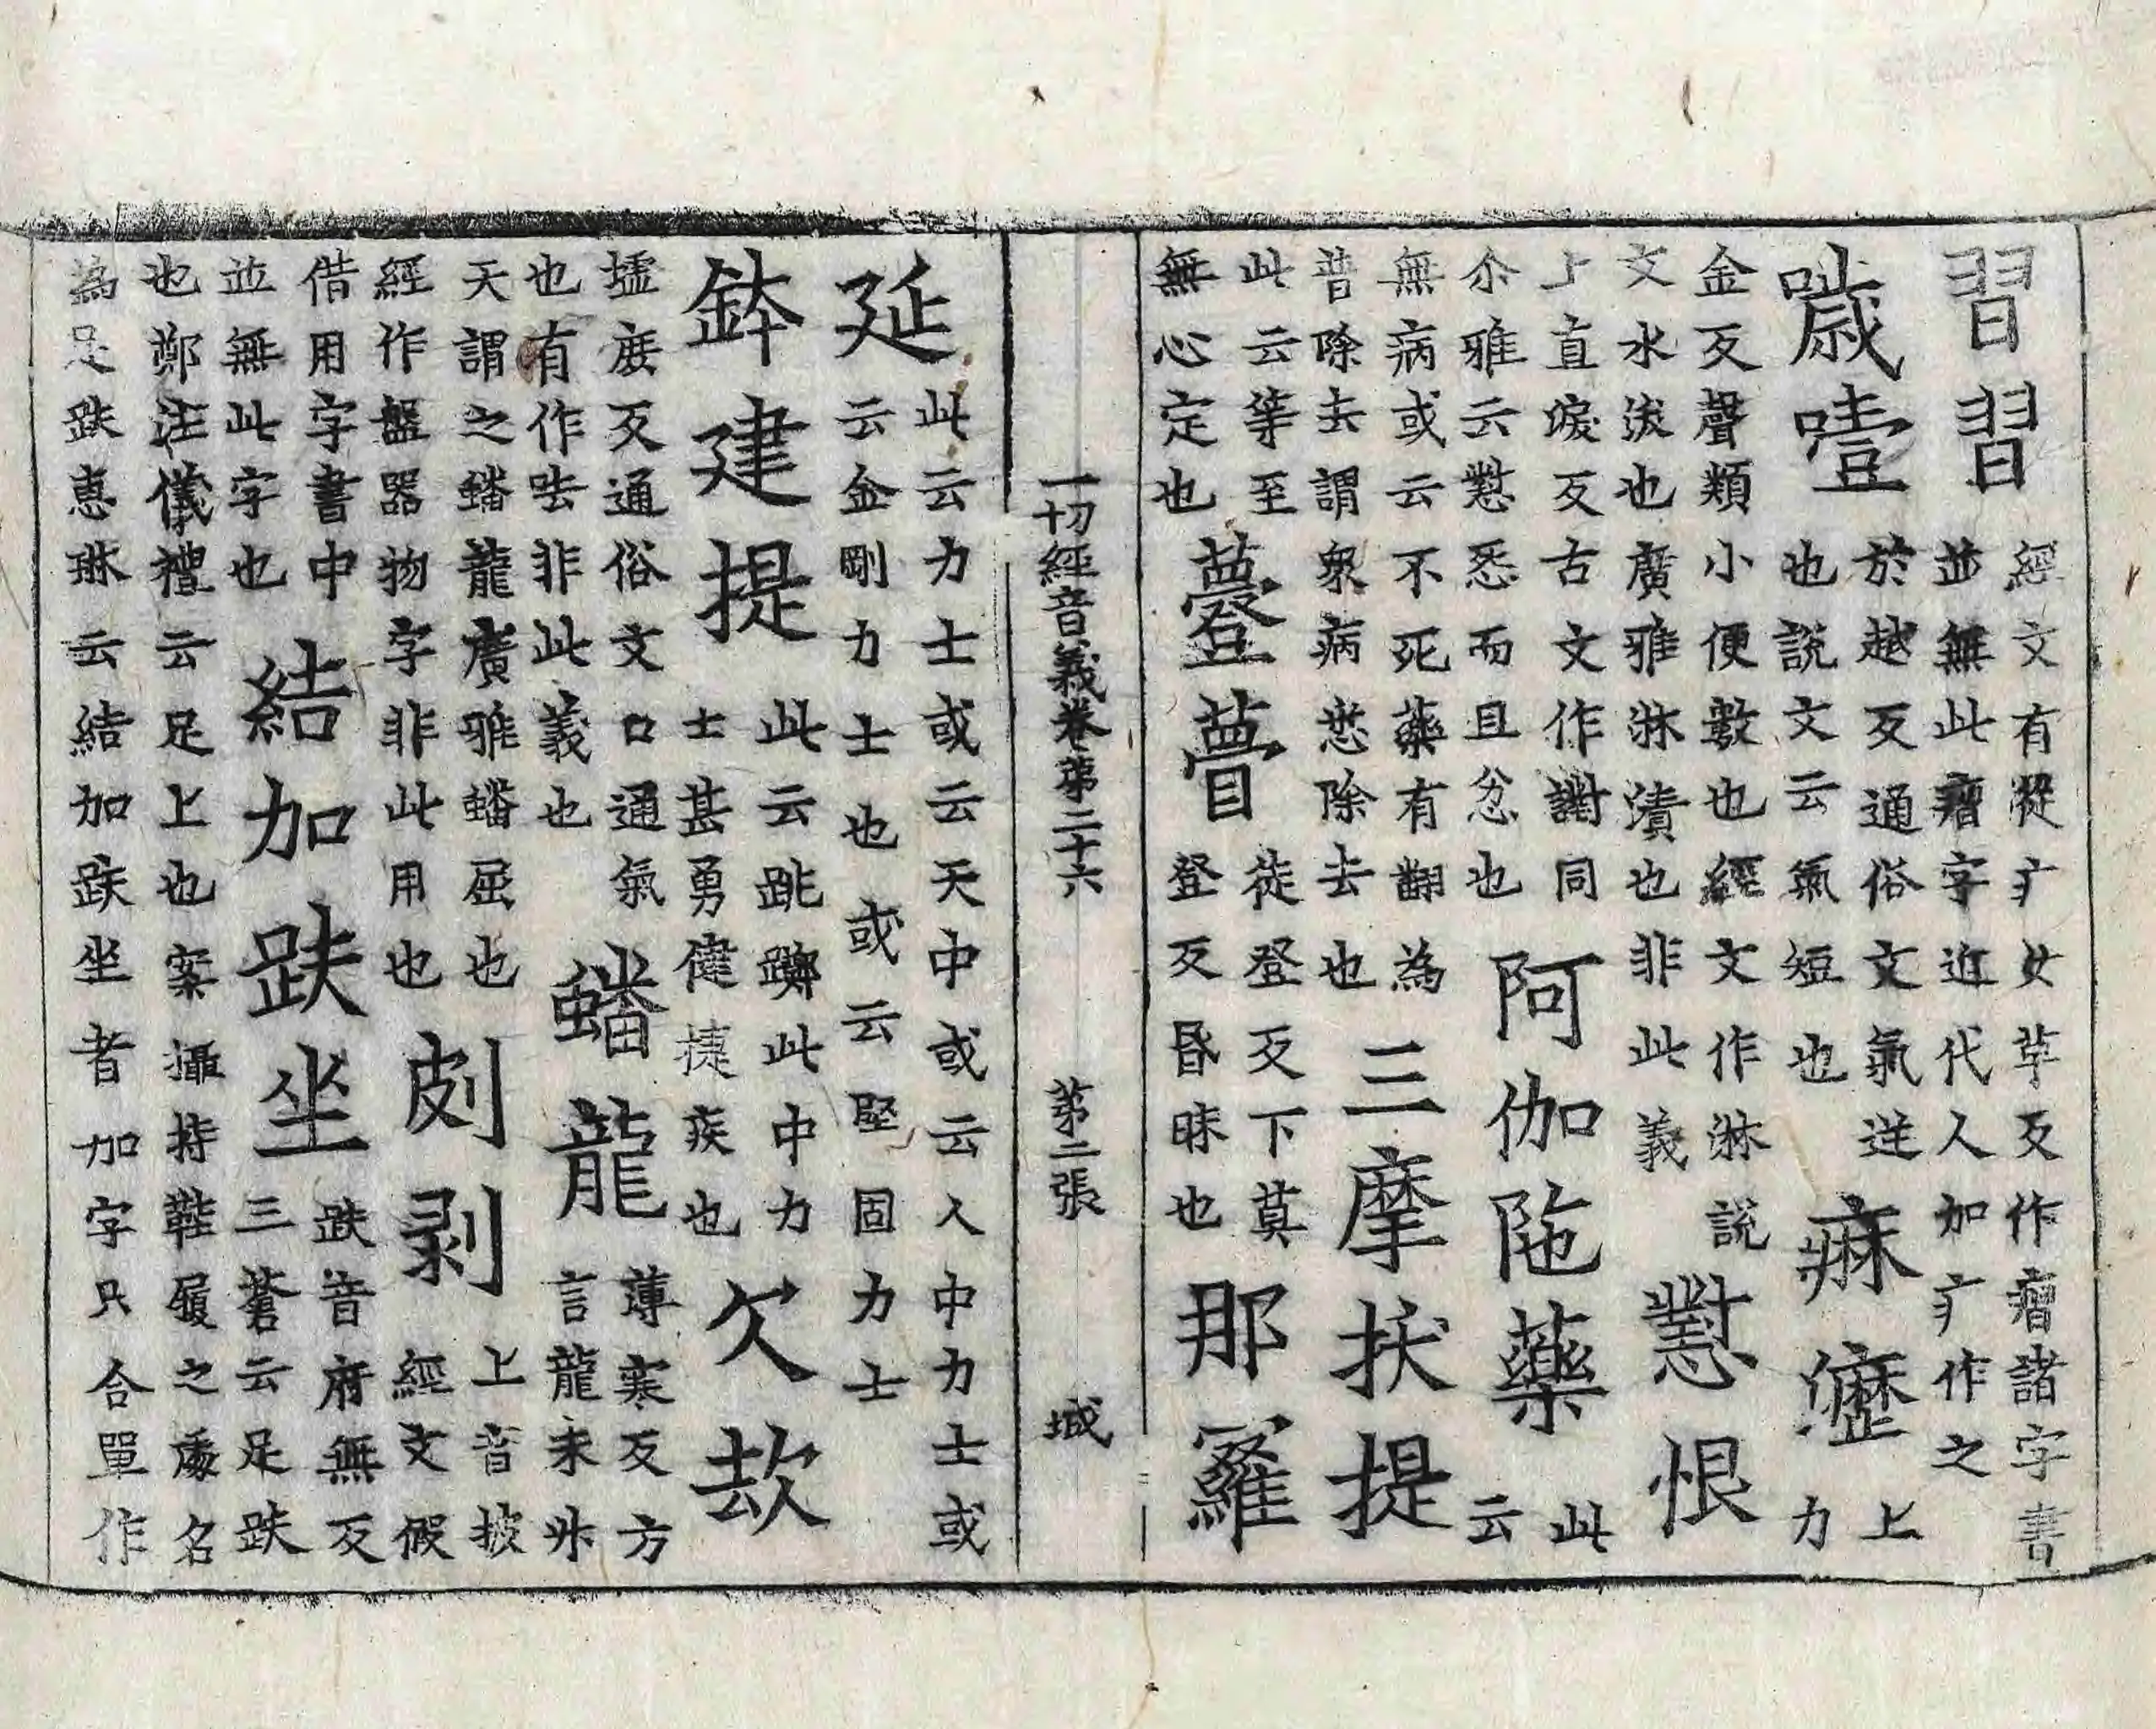 習習經文有從疒女莘反作㾽諸字書
並無此㾽字近代人加疒作之
噦噎於越反通俗文氣逆
也說文云氣短也
痳瀝上
力
金反聲類小便數也經文作淋說
文水沃也廣雅淋漬也非此義
懟恨
上直淚反古文作譵同
尒雅云懟悉而且忿也
阿伽陁藥此
云
無病或云不死藥有翻為
普除去謂衆病悉除去也
三摩拔提
此云等至
無心定也
薹瞢徒登反下莫
登反昬昧也
那羅
一切經音義卷第二十六 第二張 城
延此云力士或云天中或云人中力士或
云金剛力士也或云堅固力士
鉢建提此云跳躑此中力
士甚勇健捷疾也
欠㰦
墟庶反通俗文口通氣
也有作呿非此義也
蟠龍薄寒反方
言龍未升
天謂之蟠龍廣雅蟠屈也
經作盤器物字非此用也
㓟剥上音披
經文假
借用字書中
並無此字也
結加趺坐趺音府無反
三蒼云足趺
也鄭注儀禮云足上也案攝持鞋履之處名
為足趺惠琳云結加趺坐者加字只合單作